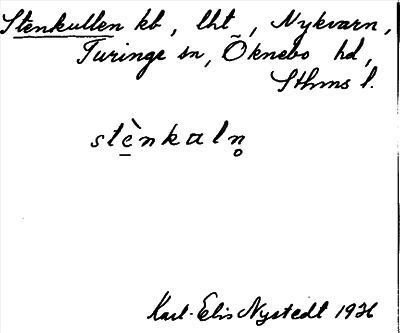 Stenkullen kb, lht, Nykvarn,
Turinge sn, Öknebo hd,
Sthms l.
stè̲nkaln̥
Karl-Elis Nystedt 1936